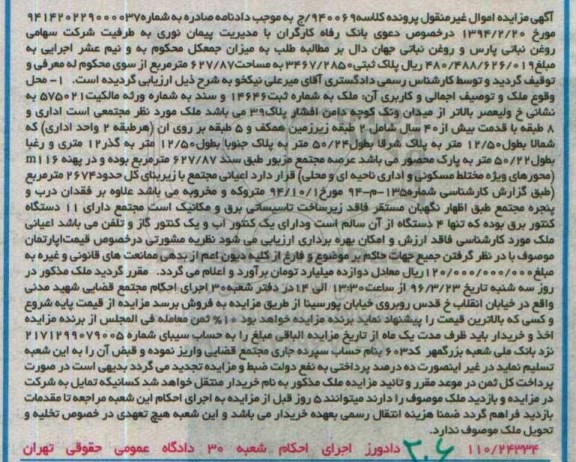 آگهی مزایده اموال غیرمنقول پرونده کلاسه۹۴۰۰۶۹/ج به موجب دادنامه صادره به شماره۹۴۱۴۲۰۲۲۹۰۰۰۰۳۷
مورخ ۱۳۹۴/۲/۲۰ درخصوص دعوی بانک رفاه کارگران با مدیریت پیمان نوری به طرفیت شرکت سهامی
روغن نباتی پارس و روغن نباتی جهان دال بر مطالبه طلب به میزان جمعکل محکوم به و نیم عشر اجرایی به
مبلغ۴۸۰/۴۸۸/۶۲۶/۰۱۹ ریال پلاک ثبتی۳۴۶۷/۲۸۵۰ به مساحت۶۲۷/۸۷ مترمربع از سوی محکوم له معرفی و
توقیف گردید و توسط کارشناس رسمی دادگستری آقای میرعلی نیکخو به شرح ذیل ارزیابی گردیده است. ۱- محل
وقوع ملک و توصیف اجمالی و کاربری آن: ملک به شماره ثبت۱۴۶۴۶ و سند به شماره ورقه مالکیت۵۷۵۰۲۱ به
نشانی خ ولیعصر بالاتر از میدان ونک کوچه دامن افشار پلاک۳۹ می باشد ملک مورد نظر مجتمعی است اداری و
۸ طبقه با قدمت بیش از۴۰ سال شامل ۲ طبقه زیرزمین همکف و ۵ طبقه بر روی آن (هرطبقه ۲ واحد اداری) که
شمالا بطول۱۲/۵۰ متر به پلاک شرقا بطول۵۰/۲۴ متر به پلاک جنوبا بطول۱۲/۵۰ متر به گذر۱۲ متری و غربا
بطول۵۰/۲۲ متر به پارک محصور می باشد عرصه مجتمع مزبور طبق سند ۶۲۷/۸۷ مترمربع بوده و در پهنه m۱۱۶
(محورهای ویژه مختلط مسکونی و اداری ناحیه ای و محلی) قرار دارد اعیانی مجتمع با زیربنای کل حدود۲۶۷۴ مترمربع
(طبق گزارش کارشناسی شماره۱۳۵-م-۹۴ مورخ۹۴/۱۰/۱ متروکه و مخروبه می باشد علاوه بر فقدان درب و
پنجره مجتمع طبق اظهار نگهبان مستقر فاقد زیرساخت تاسیساتی برق و مکانیک است مجتمع دارای ۱۱ دستگاه
کنتور برق بوده که تنها ۴ دستگاه از آن سالم است ودارای یک کنتور آب و یک کنتور گاز و تلفن می باشد اعیانی
ملک مورد کارشناسی فاقد ارزش و امکان بهره برداری ارزیابی می شود نظریه مشورتی درخصوص قیمت آپارتمان
موصوف با در نظر گرفتن جمیع جهات حاکم بر موضوع و فارغ از کلیه دیون اعم از بدهی ممانعت های قانونی و غیره به
مبلغ۱۲۰/۰۰۰/۰۰۰/۰۰۰ریال معادل دوازده میلیارد تومان برآورد و اعلام می گردد. مقرر گردید ملک مذکور در
روز سه شنبه تاریخ ۹۶/۳/۲۳ از ساعت۱۳:۳۰ الی ۱۴ در دفتر شعبه۳۰ اجرای احکام مجتمع قضایی شهید مدنی
واقع در خیابان انقلاب خ قدس روبروی خیابان پورسینا از طریق مزایده به فروش برسد مزایده از قیمت پایه شروع
و کسی که بالاترین قیمت را پیشنهاد نماید برنده مزایده خواهد بود ۱۰% ثمن معامله فی المجلس از برنده مزایده
اخذ و خریدار باید ظرف مدت یک ماه از تاریخ مزایده الباقی مبلغ را به حساب سیبای شماره ۲۱۷۱۲۹۹۰۷۹۰۰۵
نزد بانک ملی شعبه بزرگمهر کد۶۰۳ بنام حساب سپرده جاری مجتمع قضایی واریز نموده و قبض آن را به این شعبه
تسلیم نماید در غیر اینصورت ده درصد پرداختی به نفع دولت ضبط و مزایده تجدید می گردد بدیهی است در صورت
پرداخت کل ثمن در موعد مقرر و تائید مزایده ملک مذکور به نام خریدار منتقل خواهد شد کسانیکه تمایل به شرکت
در مزایده و بازدید ملک موصوف را دارند میتوانند ۵ روز قبل از مزایده به اجرای احکام این شعبه مراجعه تا مقدمات
بازدید فراهم گردد ضمنا هزینه انتقال رسمی بعهده خریدار می باشد و این شعبه هیچ تعهدی در خصوص تخلیه و
تحویل ملک موصوف ندارد.
۱۱۰/۲۴۳۳۴ دادورز اجرای احکام شعبه ۳۰ دادگاه عمومی حقوقی تهران
۲۰۶